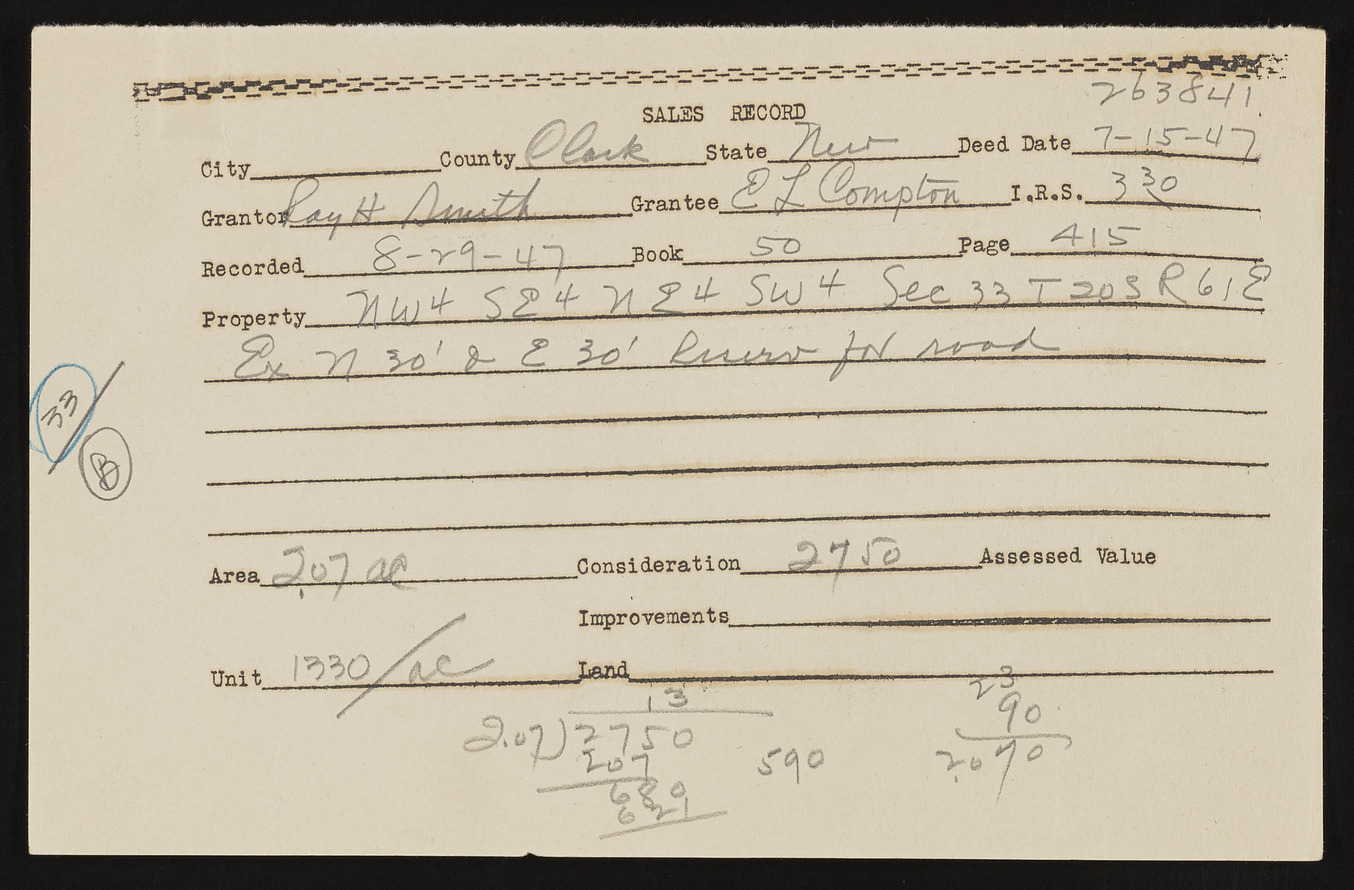 263841
SALES RECORD
City County Clark State Nev Deed Date 7-15-47
Grantor Ray H Smith Grantee E L Compton I.R.S. 330
Recorded 8-29-47 Book 50 Page 415
Property NW4 SE4 NE4 SW4 Sec 33 T 20S R 61E
Ex N 30' & E 30' Reserv for road
33
B
Area 2.07 ac Consideration 2750 Assessed Value
Improvements
Unit 1330/ac Land
13
2.07)2750
207
680
621
590
23
90
2070